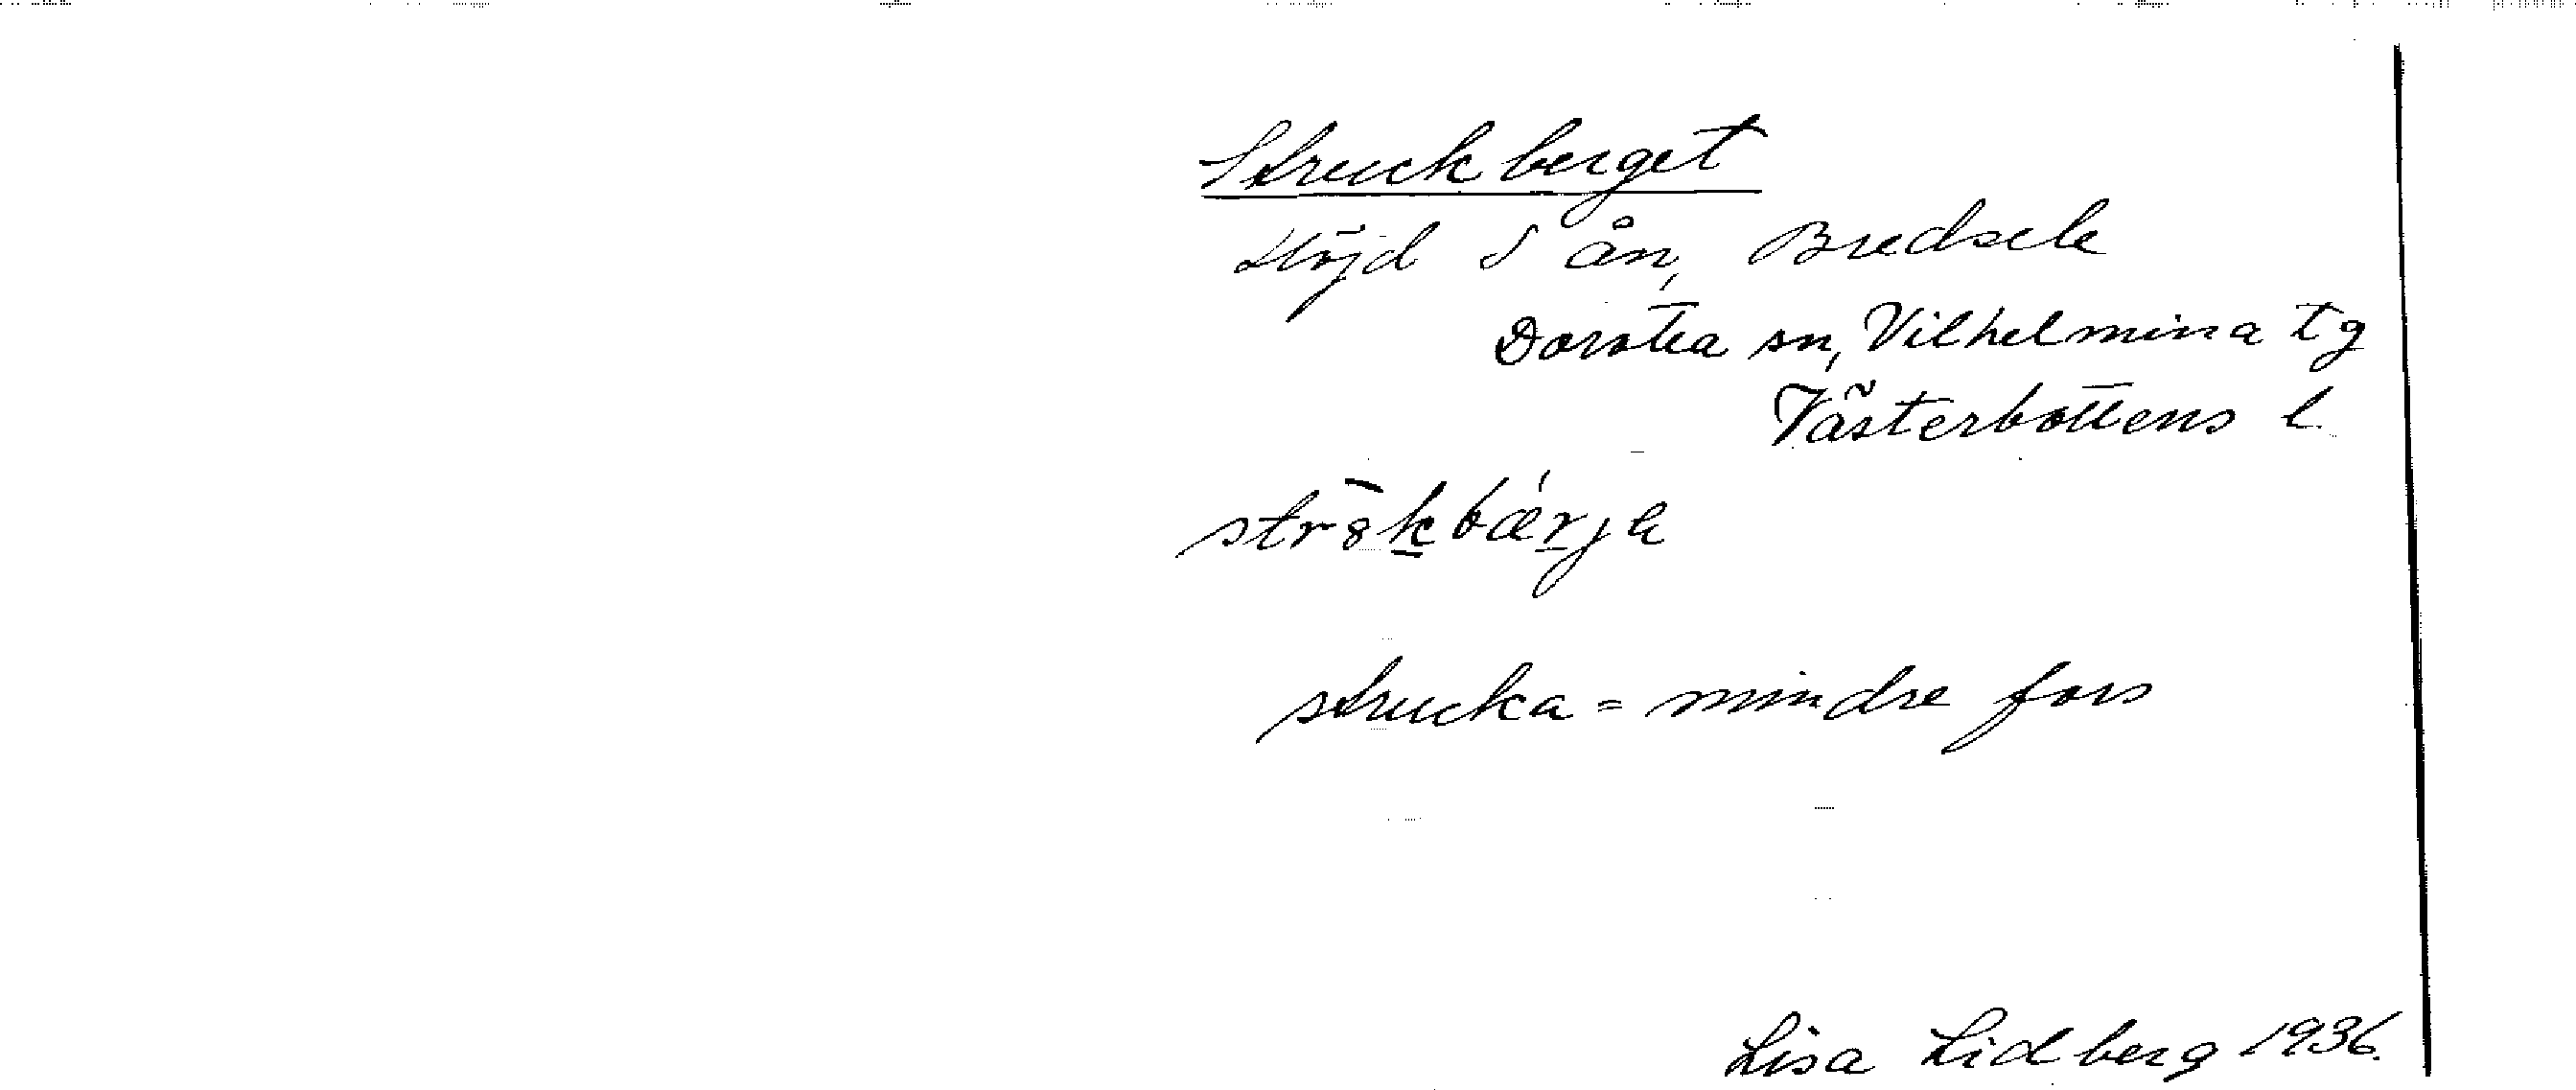 Struckberget
Höjd S ån, Bredsele
Dorotea sn, Vilhelmina tg
Västerbottens l.
str8̄kbærja
strucka = mindre fors
Lisa Lidberg 1936.